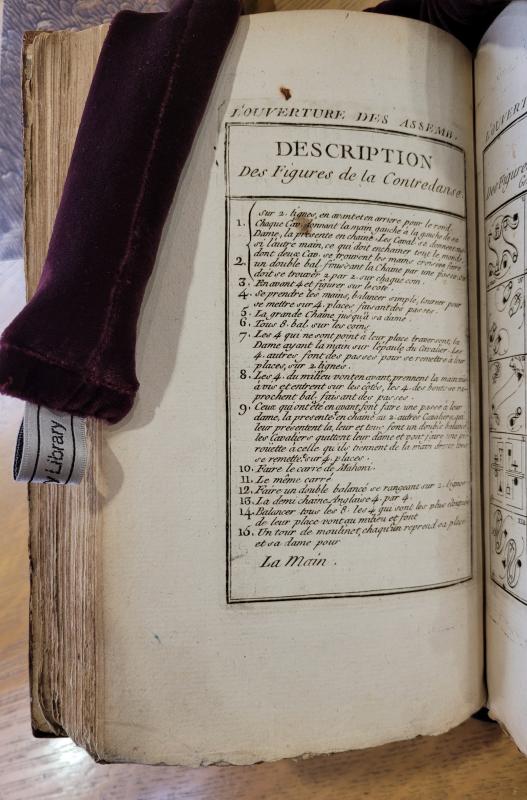 L'OUVERTURE DES ASSEMB
DESCRIPTION
Des Figures de la Contredanse.
Sur 2. lignes, en avant et en arriere pour le rond,
1. Chaque Cav. donnant la main gauche à la gauche de sa
Dame, la présente en chaîne. Les Caval. se donnent
si l'autre main, ce qui doit enchainer tout le monde
dont deux Cav. se trouvent les mains croisées ferre
2. un double bal. finissant la Chaine par une passe
doit se trouver 2 par 2. sur chaque coin.
3. En avant 4 et figurer sur le coté.
4. Se prendre les mains, balancer simple, tourner pour
se mettre sur 4. places, faisant des passes.
5. La grande Chaîne jusqu'à sa dame.
6. Tous 8. bal. sur les coins.
7. Les 4 qui ne sont point à leur place traversent, la
Dame ayant la main sur l'épaule du Cavalier. Les
4. autres font des passes pour se remettre à leur
places, sur 2 lignes.
8. Les 4. du milieu vont en avant, prennent la main
à vis et entrent sur les côtés, les 4. des bouts se
prochent bal. faisant des passes.
9. Ceux qui ont été en avant font faire une passe à leur
dame, la presente en chaine au 2 autres Cavaliers, qui
leur présentent la leur et tous font un double balancé
les Cavaliers quittent leur dame et vont faire une pi
rouette à celle qu'ils tiennent de la main droite, tous
se remette sur 4. places.
10. Faire le carré de Mahoni.
11. Le même carré
12. Faire un double balancé se rangeant sur 2. lignes
13. La demi chaine Anglaise 4. par 4.
14. Balancer tous les 8. les 4 qui sont les plus éloignés
de leur place vont au milieu et font
15. Un tour de moulinet, chaqu'un reprend sa place
et sa dame pour
La Main.
y Library
L'OUVERT
Des Figures